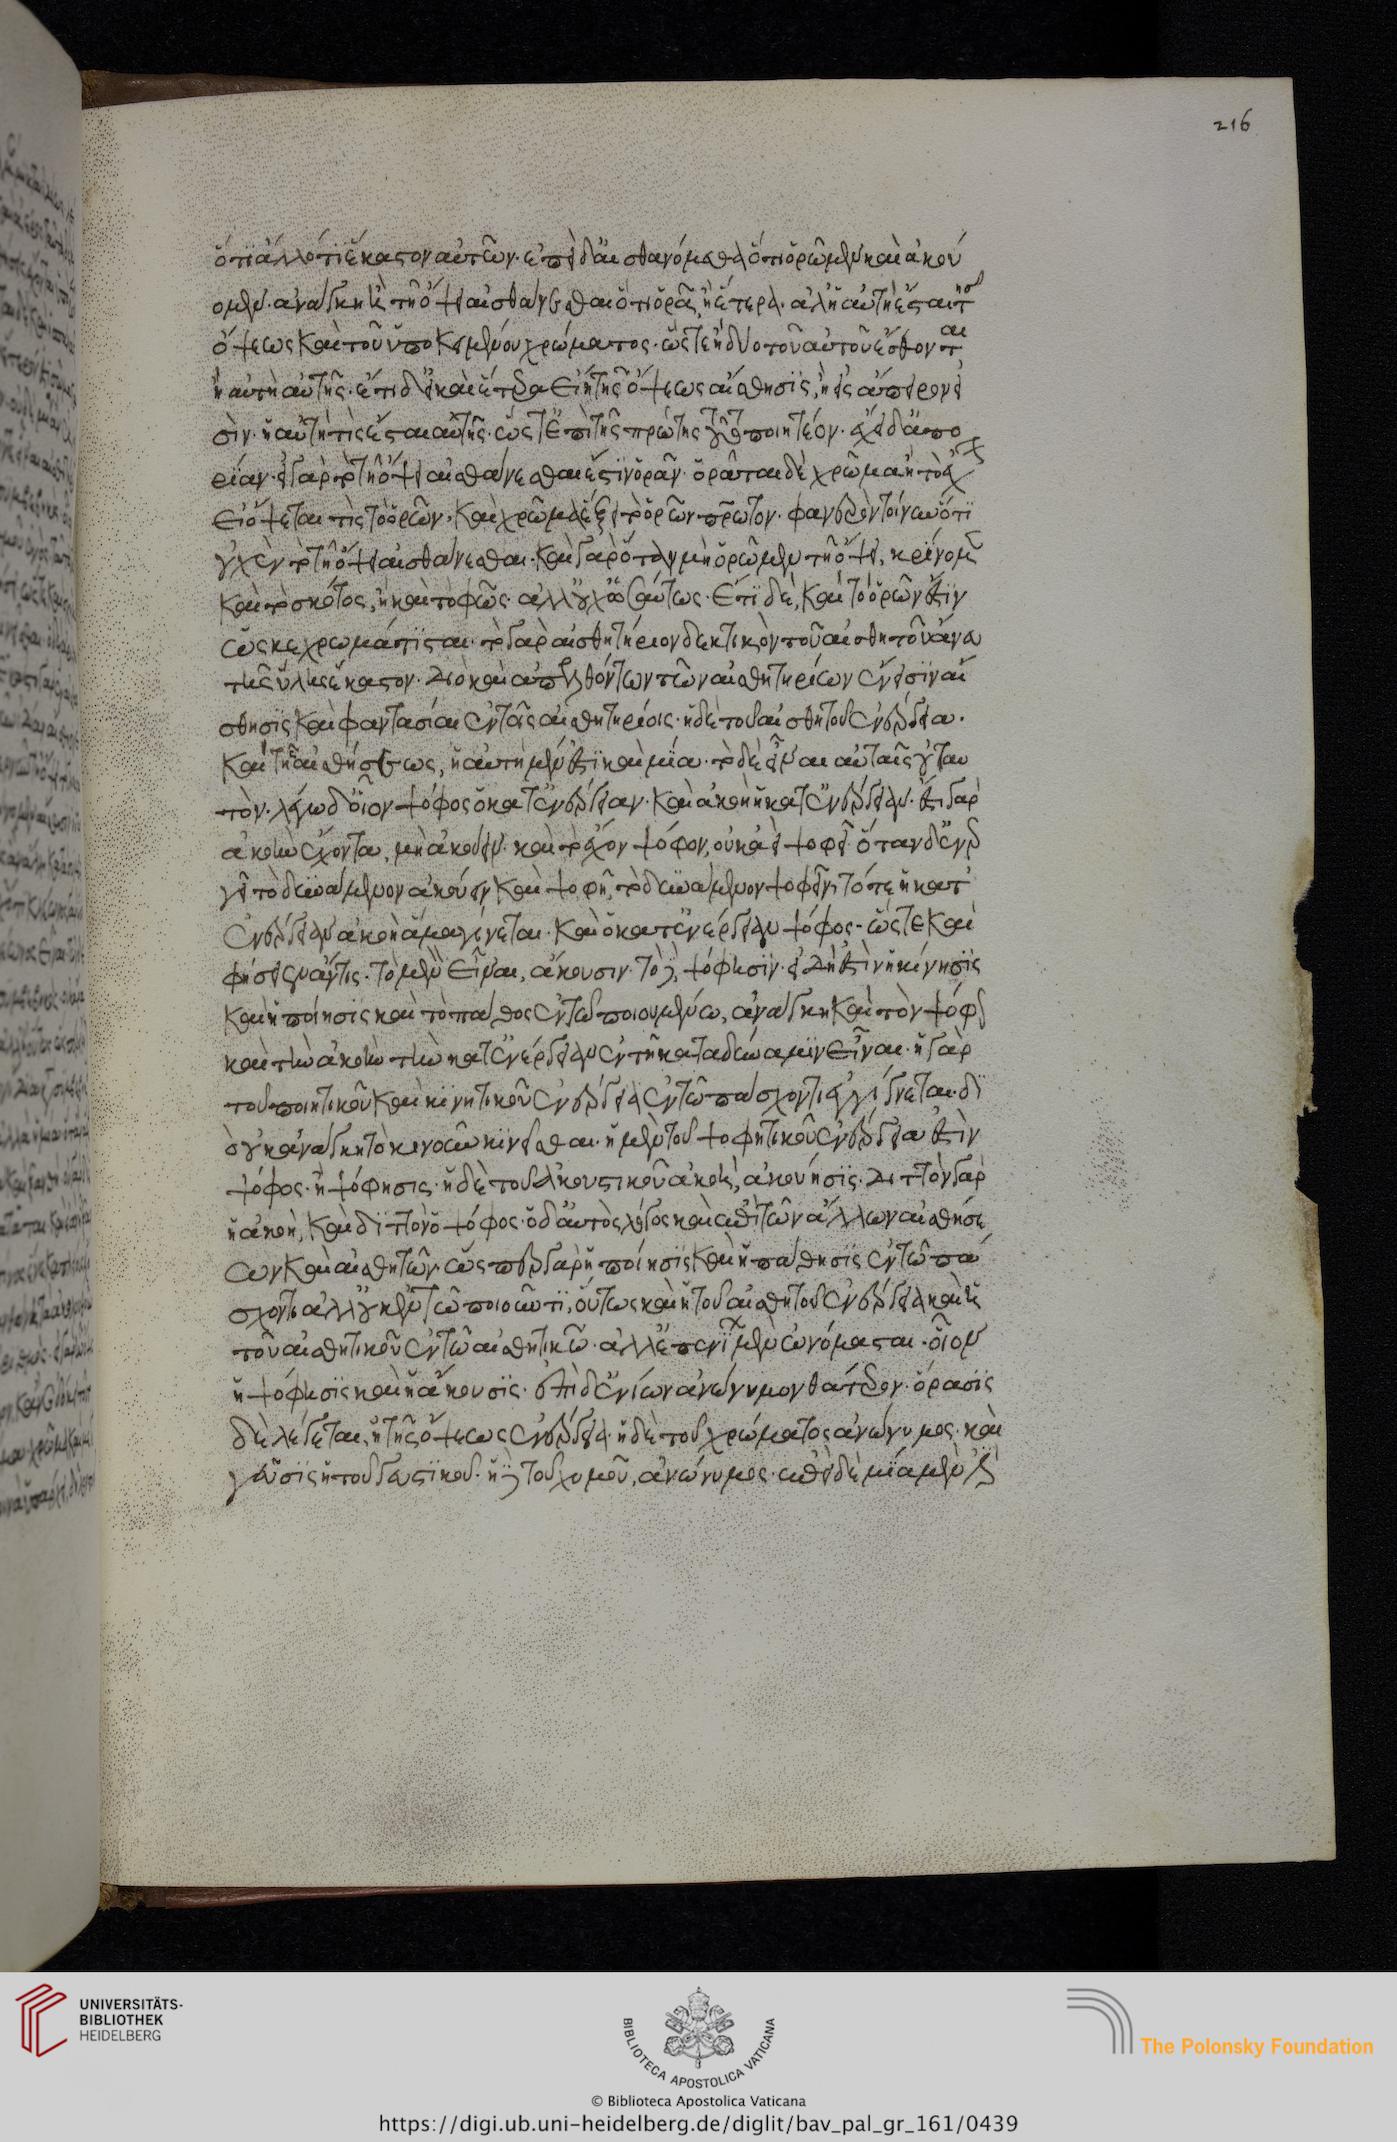 ὅτι ἄλλό τι ἕκαστον αὐτῶν· ἐπεὶ δ' αἰσθανόμεθα ὅτι ὁρῶμεν καὶ ἀκού
ομεν· ἀνάγκη ἢ τῇ ὄψει αἰσθάνεσθαι ὅτι ὁρᾶ, ἢ ἑτέρα· ἀλλ' ἡ αὐτὴ ἔσται τῆς
ὄψεως καὶ τοῦ ὑποκειμένου χρώματος· ὥστε ἢ δύο τοῦ αὐτοῦ ἔσονται
ἢ αὐτὴ αὑτῆς· ἔτι δ' εἰ καὶ ἑτέρα εἴη τῆς ὄψεως αἴσθησις, ἢ εἰς ἄπειρον εἶ
σιν· ἢ αὐτή τις ἔσται αὑτῆς· ὥστ' ἐπὶ τῆς πρώτης τοῦτο ποιητέον· ἔχει δ' ἀπο
ρίαν· εἰ γὰρ τὸ τῇ ὄψει αἰσθάνεσθαι ἐστὶν ὁρᾶν· ὁρᾶται δὲ χρῶμα ἢ τὸ ἔχον
εἰ ὄψεταί τις τὸ ὁρῶν· καὶ χρῶμα ἕξει τὸ ὁρῶν πρῶτον· φανερὸν τοίνυν ὅτι
οὐχ ἓν τὸ τῇ ὄψει αἰσθάνεσθαι· καὶ γὰρ ὅταν μὴ ὁρῶμεν τῇ ὄψει, κρίνομεν
καὶ τὸ σκότος, ἢ καὶ τὸ φῶς· ἀλλ' οὐχ ὡσαύτως· ἔτι δὲ, καὶ τὸ ὁρῶν ἐστὶν
ὡς κεχρωμάτισται· τὸ γὰρ αἰσθητήριον δεκτικὸν τοῦ αἰσθητοῦ ἄνευ
τῆς ὕλης ἕκαστον· διὸ καὶ ἀπελθόντων τῶν αἰσθητηρίων ἔνεισιν αἴ
σθησις καὶ φαντασίαι ἐν τοῖς αἰσθητηρίοις· ἡ δὲ τοῦ αἰσθητοῦ ἐνέργεια·
καὶ τῆς αἰσθήσεως, ἡ αὐτὴ μὲν ἐστὶ καὶ μία· τὸ δὲ εἶναι αὐταῖς οὐ ταυ
τόν· λέγω δ' οἷον ψόφος ὁ κατ' ἐνέργειαν· καὶ ἀκοὴ ἡ κατ' ἐνέργειαν· ἔστι γὰρ
ἀκοὴν ἔχοντα, μὴ ἀκούειν· καὶ τὸ ἔχον ψόφον, οὐκ ἀεὶ ψοφεῖ· ὅταν δ' ἐνερ
γῇ τὸ δυνάμενον ἀκούειν καὶ ψοφῇ, τὸ δυνάμενον ψοφεῖν, τότε ἡ κατ'
ἐνέργειαν ἀκοὴ ἅμα γίνεται· καὶ ὁ κατ' ἐνέργειαν ψόφος· ὥστε καὶ
φήσειεν ἄν τις· τὸ μὲν εἶναι, ἄκουσιν· τὸ δὲ, ψόφησιν· εἰ δή ἐστιν ἡ κίνησις
καὶ ἡ ποίησις καὶ τὸ πάθος ἐν τῷ ποιουμένῳ, ἀνάγκη καὶ τὸν ψόφον
καὶ τὴν ἀκοὴν τὴν κατ' ἐνέργειαν ἐν τῇ κατὰ δύναμιν εἶναι· ἡ γὰρ
τοῦ ποιητικοῦ καὶ κινητικοῦ ἐνέργεια ἐν τῷ πάσχοντι ἐγγίνεται· δι
ὸ οὐκ ἀνάγκη τὸ κινοῦν κινεῖσθαι· ἡ μὲν τοῦ ψοφητικοῦ ἐνέργεια ἐστὶν
ψόφος· ἢ ψόφησις· ἡ δὲ τοῦ ἀκουστικοῦ ἀκοὴ, ἀκουή σις· διττὸν γὰρ
ἡ ἀκοὴ, καὶ διττὸν ὁ ψόφος· ὁ δ' αὐτὸς λόγος καὶ ἐπὶ τῶν ἄλλων αἰσθήσε
ων καὶ αἰσθητῶν· ὥσπερ γὰρ ἡ ποίησις καὶ ἡ πάθησις ἐν τῷ πά
σχοντι ἀλλ' οὐκ ἐν τῷ ποιοῦντι, οὕτως καὶ ἡ τοῦ αἰσθητοῦ ἐνέργεια καὶ ἡ
τοῦ αἰσθητικοῦ ἐν τῷ αἰσθητικῷ· ἀλλ' ἐπ' ἐνίων μὲν ὠνόμασται· οἷον
ἡ ψόφησις καὶ ἡ ἄκουσις· ἐπὶ δ' ἐνίων ἀνώνυμον θάτερον· ὅρασις
δὲ λέγεται, ἡ τῆς ὄψεως ἐνέργεια· ἡ δὲ τοῦ χρώματος ἀνώνυμος· καὶ
γεῦσις ἡ τοῦ γευστικοῦ· ἡ δὲ τοῦ χυμοῦ, ἀνώνυμος· ἐπεὶ δὲ μία μέν ἐστιν
216
UNIVERSITÄTS-
BIBLIOTHEK
HEIDELBERG
BIBLIOTECA APOSTOLICA VATICANA
The Polonsky Foundation
© Biblioteca Apostolica Vaticana
https://digi.ub.uni-heidelberg.de/diglit/bav_pal_gr_161/0439